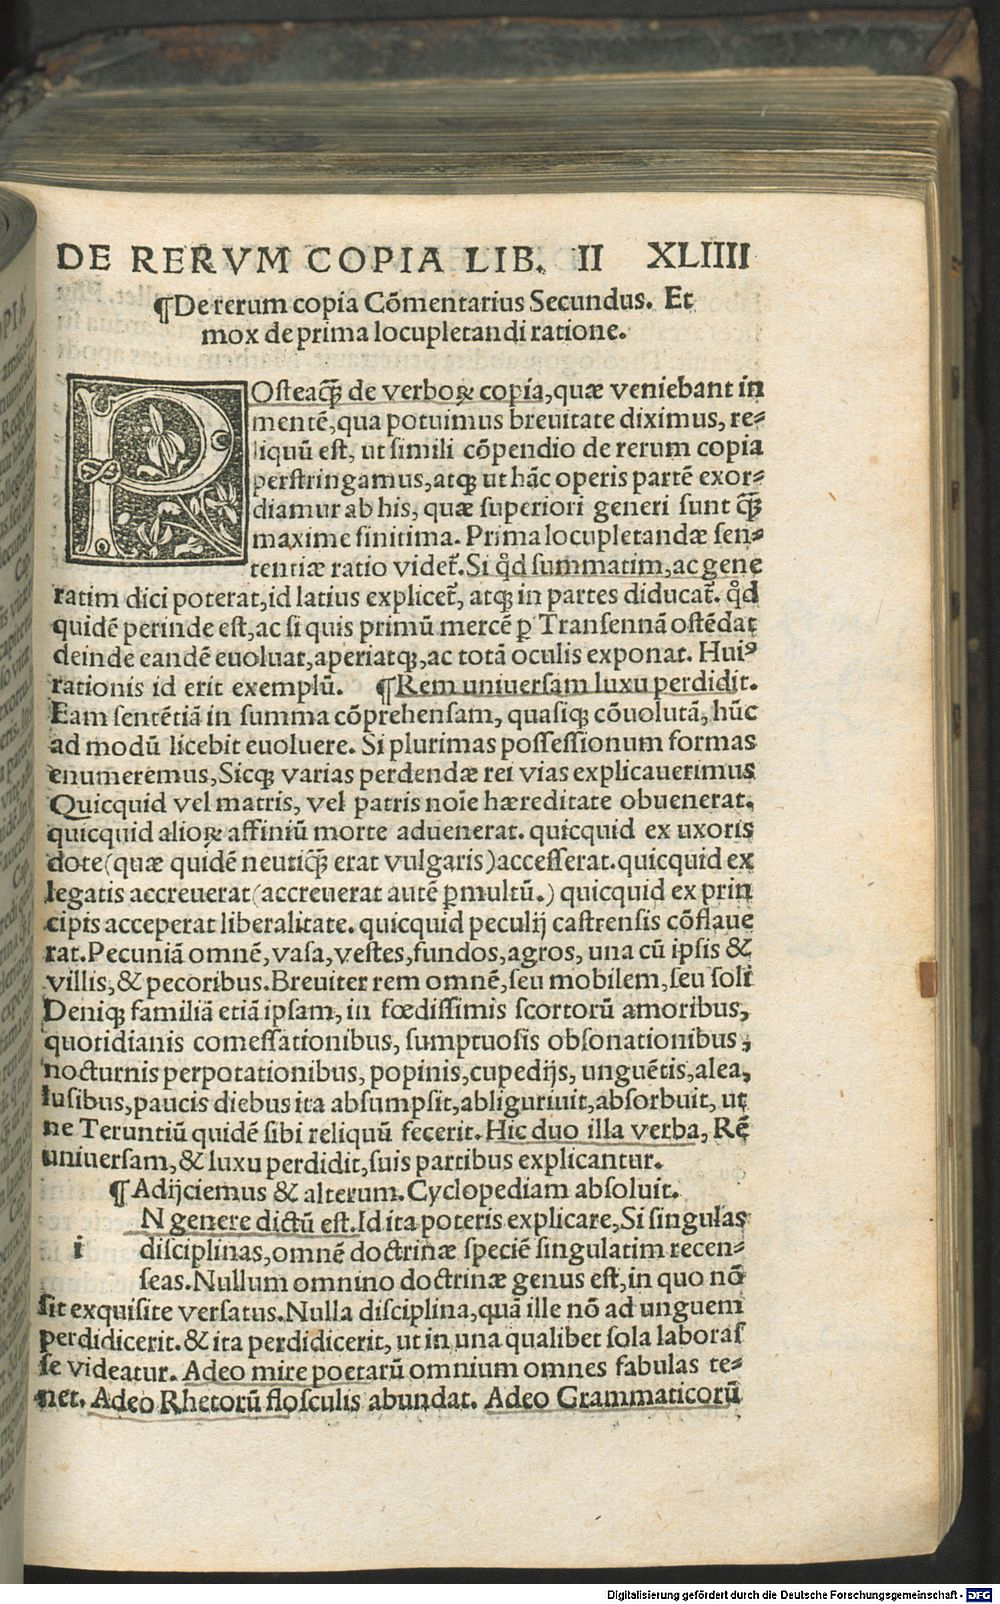 DE RERVM COPIA LIB. II XLIIII
¶De rerum copia Cōmentarius Secundus. Et
mox de prima locupletandi ratione.
POſteaq̃ de verboꝝ copia,quæ veniebant in
mentē,qua potuimus breuitate diximus, re⸗
liquū eſt, ut ſimili cōpendio de rerum copia
perſtringamus,atqꝫ ut hāc operis partē exor⸗
diamur ab his, quæ ſuperiori generi ſunt q̃ꝫ
maxime finitima. Prima locupletandæ ſen⸗
tentiæ ratio videt᷑.Si q̊d ſummatim,ac gene
ratim dici poterat,id latius explicet᷑, atqꝫ in partes diducat᷑. q̊d
quidē perinde eſt,ac ſi quis primū mercē ꝑ Tranſennā oſtēdat
deinde eandē euoluat,aperiatqꝫ,ac totā oculis exponat. Huiꝰ
rationis id erit exemplū. ¶Rem uniuerſam luxu perdidit.
Eam ſentētiā in ſumma cōprehenſam, quaſiqꝫ cōuolutā, hūc
ad modū licebit euoluere. Si plurimas poſſeſſionum formas
enumeremus,Sicqꝫ varias perdendæ rei vias explicauerimus
Quicquid vel matris, vel patris noīe hæreditate obuenerat.
quicquid alioꝝ affiniū morte aduenerat. quicquid ex uxoris
dote(quæ quidē neutiq̃ꝫ erat vulgaris)acceſſerat.quicquid ex
legatis accreuerat(accreuerat autē ꝑmultū.) quicquid ex prin
cipis acceperat liberalitate. quicquid peculij caſtrenſis cōflaue
rat.Pecuniā omnē,vaſa,veſtes,fundos,agros, una cū ipſis &
villis,& pecoribus.Breuiter rem omnē,ſeu mobilem,ſeu ſoli
Deniqꝫ familiā etiā ipſam, in fœdiſſimis ſcortorū amoribus,
quotidianis comeſſationibus, ſumptuoſis obſonationibus,
nocturnis perpotationibus, popinis,cupedijs, unguētis,alea,
luſibus,paucis diebus ita abſumpſit,abliguriuit,abſorbuit, ut
ne Teruntiū quidē ſibi reliquū fecerit. Hic duo illa verba, Rē
uniuerſam,& luxu perdidit,ſuis partibus explicantur.
¶Adijciemus & alterum.Cyclopediam abſoluit.
iN genere dictū eſt.Id ita poteris explicare,Si ſingulas
diſciplinas,omnē doctrinæ ſpeciē ſingulatim recen⸗
ſeas.Nullum omnino doctrinæ genus eſt,in quo nō
ſit exquiſite verſatus.Nulla diſciplina,quā ille nō ad unguem
perdidicerit.& ita perdidicerit, ut in una qualibet ſola laboraſ
ſe videatur. Adeo mire poetarū omnium omnes fabulas te⸗
net. Adeo Rhetorū floſculis abundat. Adeo Grammaticorū
Digitalisierung gefördert durch die Deutsche Forschungsgemeinschaft - DFG